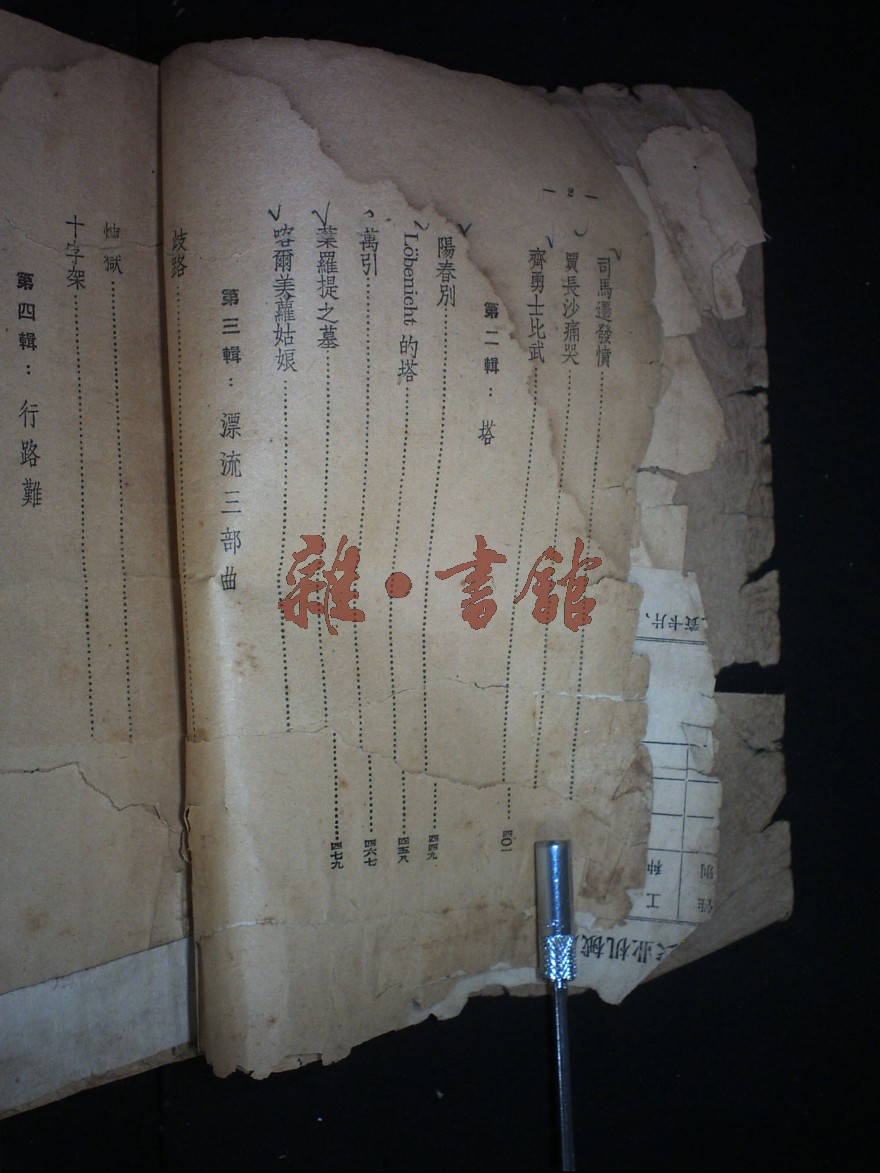 — 2 —
司馬遷發憤
賈長沙痛哭
齊勇士比武 四〇一
第二輯：塔
陽春別 四四九
Löbenicht 的塔 四五八
萬引 四六七
葉羅提之墓 四七九
喀爾美蘿姑娘
第三輯：漂流三部曲
歧路
煉獄
十字架
第四輯：行路難
雜·書館
卡片
工种
别
业机械